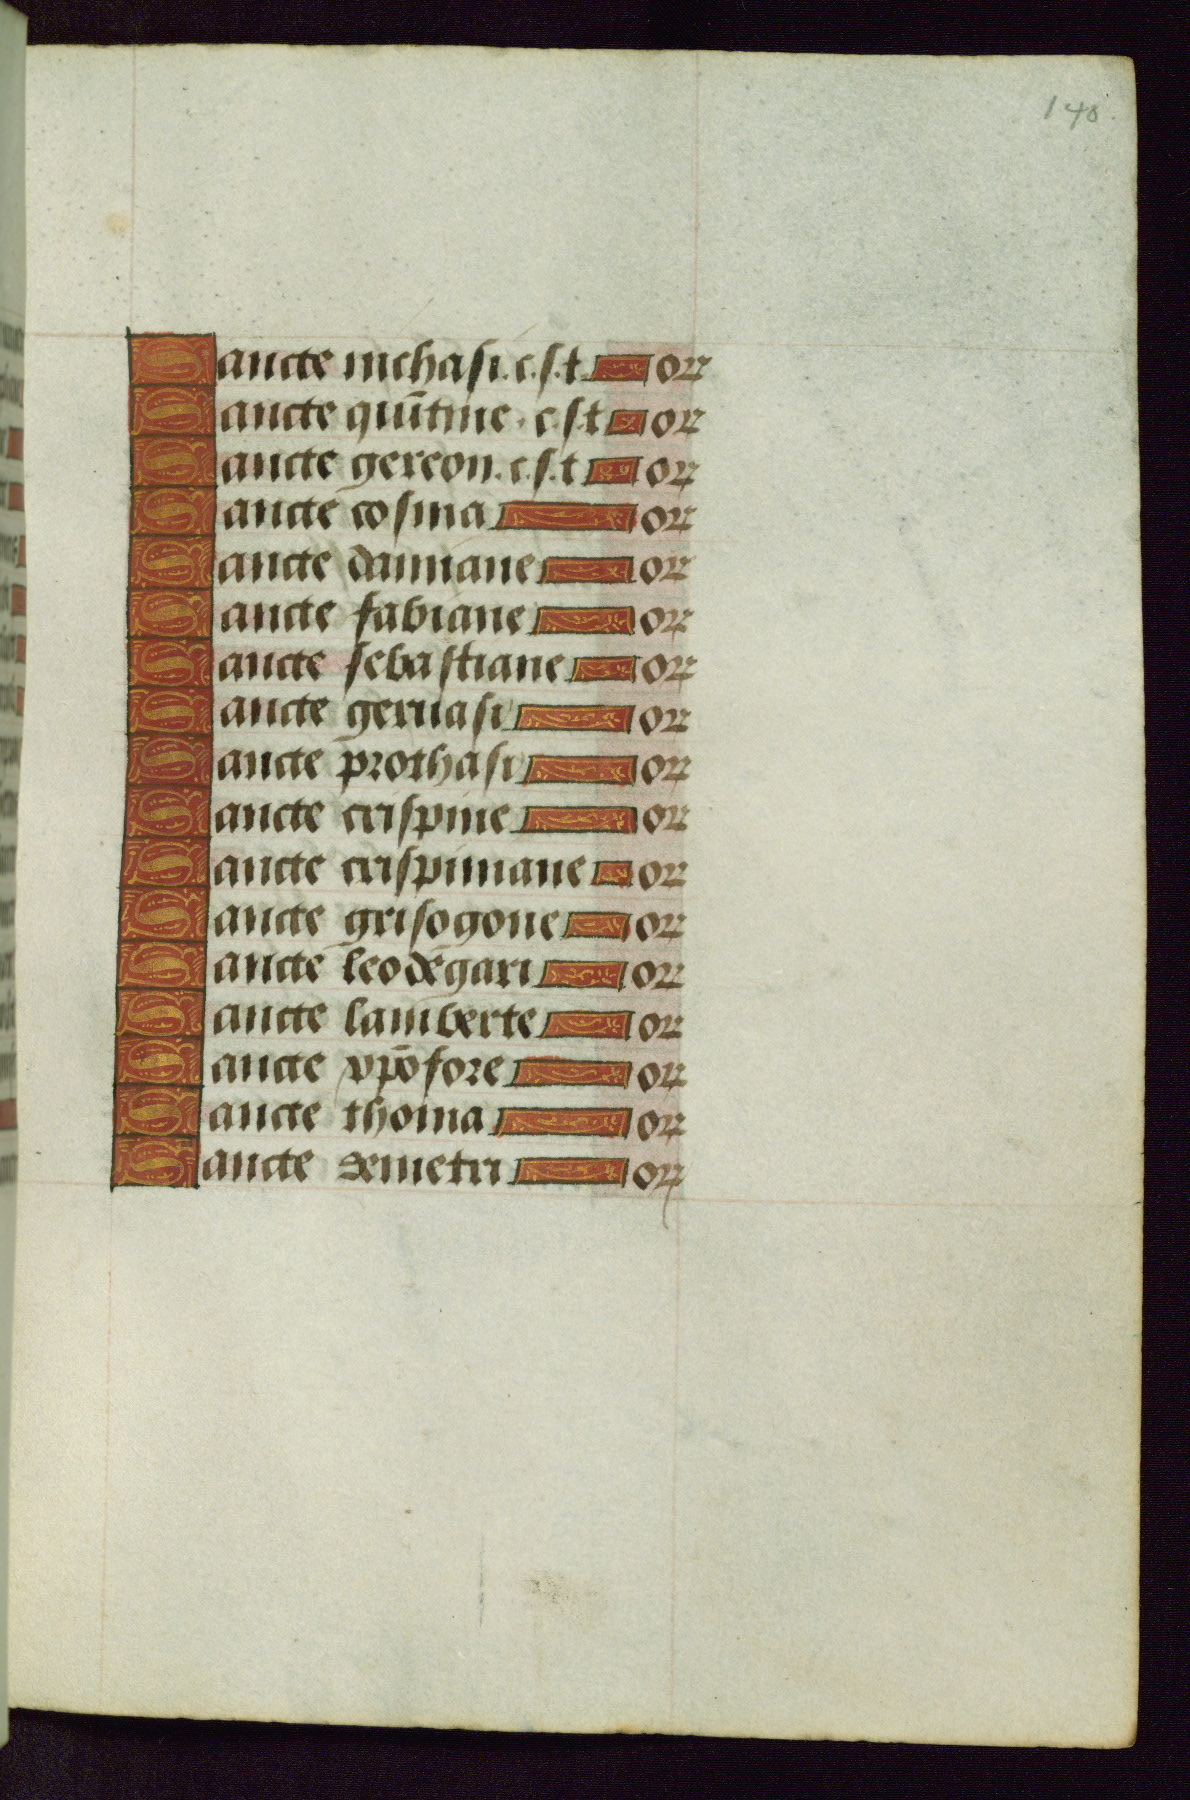 148.
Sancte nichasi.c.s.t. or
Sancte quītine. c.s.t or
Sancte gereon.c.s.t or
Sancte cosma or
Sancte damiane or
Sancte fabiane or
Sancte sebastiane or
Sancte geruasi or
Sancte prothasi or
Sancte crispine or
Sancte crispiniane or
Sancte grisogone or
Sancte leodegari or
Sancte lamberte or
Sancte xp̄ofore or
Sancte thoma or
Sancte demetri or